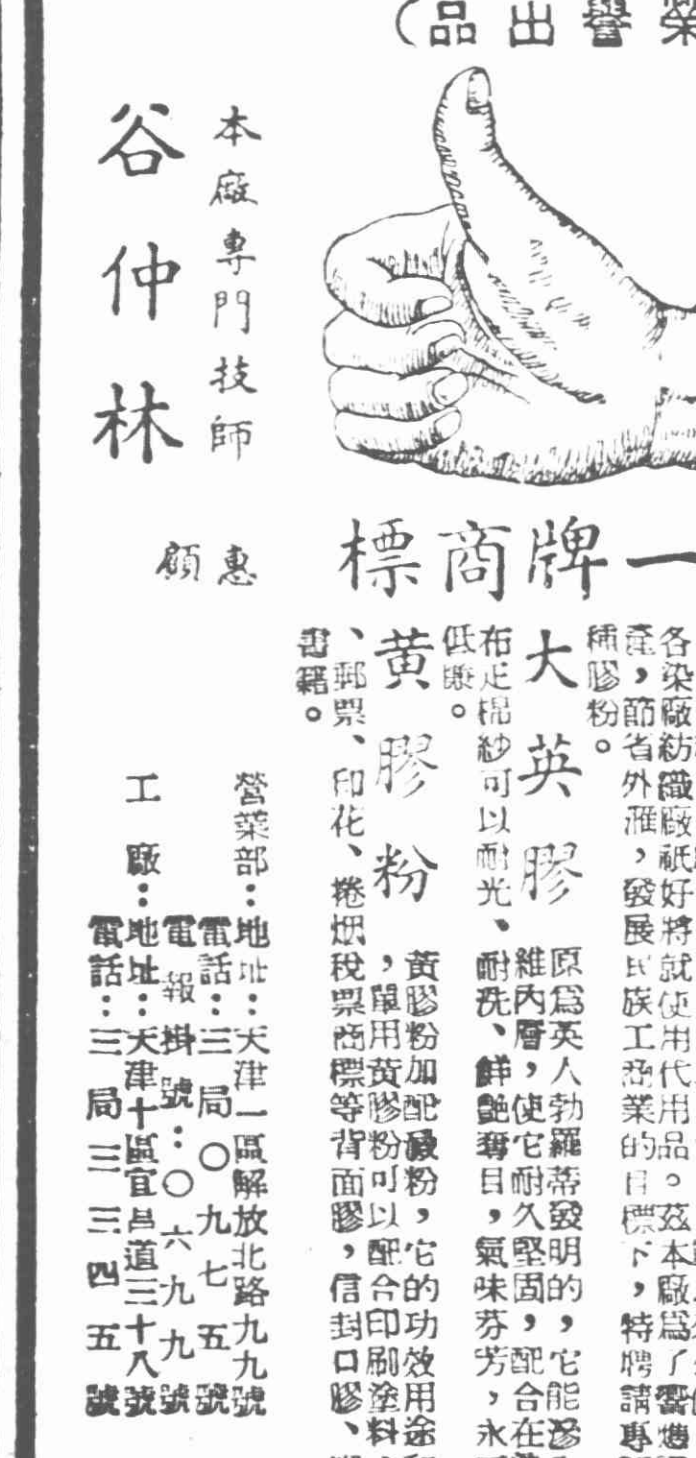 榮譽出品）
一牌商標
各染廠紡織廠祇好將就使用代用品。茲本廠爲了響應
產，節省外滙，發展民族工商業的目標下，特聘請專
種膠粉。
大英膠
原爲英人勃羅蒂發明的，它能滲
維內層，使它耐久堅固，配合在
布疋棉紗可以耐光、耐洗、鮮艷奪目，氣味芬芳，永
低廉。
黃膠粉
黃膠粉加配酸粉，它的功效用途
，單用黃膠粉可以配合印刷塗料
、郵票、印花、捲烟稅票商標等背面膠，信封口膠、
書籍。
本廠專門技師
谷仲林
惠顧
營業部：地址：天津一區解放北路九九號
電話：三局〇九七五號
電報掛號：〇六九九號
工廠：地址：天津十區宜昌道三十八號
電話：三局三三四五號